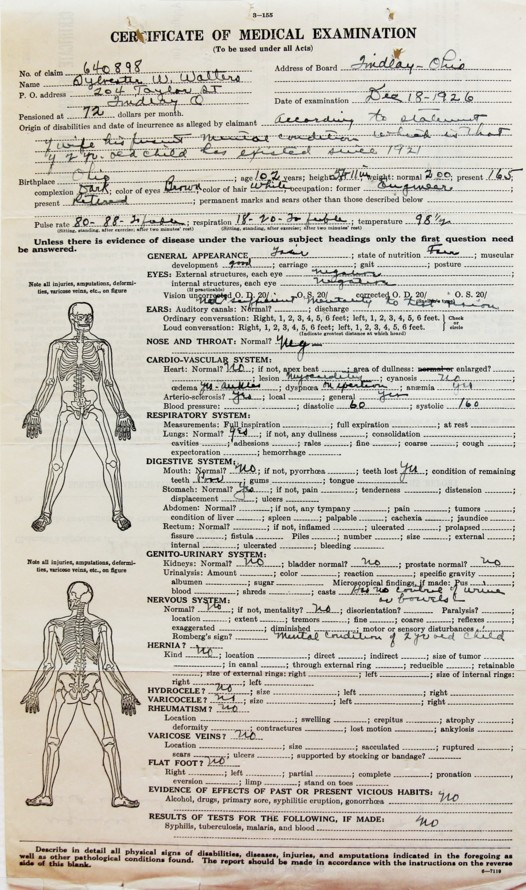 3—155
CERTIFICATE OF MEDICAL EXAMINATION
(To be used under all Acts)
No. of claim 640898
Address of Board Findlay - Ohio
Name Sylvester W. Walters
P. O. address 204 Taylor St
Findlay O
Date of examination Dec 18-1926
Pensioned at 72 dollars per month.
According to statement
Origin of disabilities and date of incurrence as alleged by claimant
wife his mental condition which is that
2 yr. old child has existed since 1921
Birthplace Ohio; age 102 years; height 5 ft 11 in; weight: normal 200; present 165;
complexion Dark; color of eyes Brown; color of hair White; occupation: former Engineer
present Retired; permanent marks and scars other than those described below
Pulse rate 80-88-; respiration 18-20-; temperature 98½
(Sitting, standing, after exercise; after two minutes' rest) (Sitting, standing, after exercise; after two minutes' rest)
Unless there is evidence of disease under the various subject headings only the first question need
be answered.
GENERAL APPEARANCE Fair; state of nutrition Fair; muscular
development good; carriage; gait; posture
EYES: External structures, each eye Negative
internal structures, each eye Negative
(If practicable)
Vision uncorrected O. D. 20/ O. S. 20/ corrected O. D. 20/ O. S. 20/
Not mentally to test vision
EARS: Auditory canals: Normal?; discharge
Ordinary conversation: Right, 1, 2, 3, 4, 5, 6 feet; left, 1, 2, 3, 4, 5, 6 feet. Check
Loud conversation: Right, 1, 2, 3, 4, 5, 6 feet; left, 1, 2, 3, 4, 5, 6 feet. or circle
(Indicate greatest distance at which heard)
NOSE AND THROAT: Normal? Neg
Note all injuries, amputations, deformities, varicose veins, etc., on figure
CARDIO-VASCULAR SYSTEM:
Heart: Normal? No; if not, apex beat; area of dullness: normal or enlarged?
; lesion; cyanosis No
œdema yes - ankles; dyspnœa on exertion; anæmia yes
Arterio-sclerosis? yes; local; general yes
Blood pressure:; diastolic 60; systolic 160
RESPIRATORY SYSTEM:
Measurements: Full inspiration; full expiration; at rest
Lungs: Normal? yes; if not, any dullness; consolidation
cavities; adhesions; rales; fine; coarse; cough
expectoration; hemorrhage
DIGESTIVE SYSTEM:
Mouth: Normal? No; if not, pyorrhœa; teeth lost yes; condition of remaining
teeth Poor; gums; tongue
Stomach: Normal? yes; if not, pain; tenderness; distension
displacement; ulcers
Abdomen: Normal?; if not, any tympany; pain; tumors
condition of liver; spleen; palpable; cachexia; jaundice
Rectum: Normal?; if not, inflamed; ulcerated; prolapsed
fissure; fistula Piles; number; size; external
internal; ulcerated; bleeding
Note all injuries, amputations, deformities, varicose veins, etc., on figure
GENITO-URINARY SYSTEM:
Kidneys: Normal? No; bladder normal? no; prostate normal? no
Urinalysis: Amount; color; reaction; specific gravity
albumen; sugar Microscopical findings, if made: Pus
blood; shreds; casts Has no control of urine
or bowels
NERVOUS SYSTEM:
Normal? No; if not, mentality? No; disorientation? Paralysis?
location; extent; tremors; fine; coarse; reflexes
exaggerated; diminished; motor or sensory disturbances
Romberg's sign? Mental condition of 2 yr old child
HERNIA? No
Kind; location; direct; indirect; size of tumor
; in canal; through external ring; reducible; retainable
; size of external rings: right; left; size of internal rings:
right; left
HYDROCELE? No; size; left; right
VARICOCELE? No; size; left; right
RHEUMATISM? No
Location; swelling; crepitus; atrophy
deformity; contractures; lost motion; ankylosis
VARICOSE VEINS? No
Location; size; sacculated; ruptured
scars; ulcers; supported by stocking or bandage?
FLAT FOOT? No
Right; left; partial; complete; pronation
eversion; limp; stand on toes
EVIDENCE OF EFFECTS OF PAST OR PRESENT VICIOUS HABITS:
Alcohol, drugs, primary sore, syphilitic eruption, gonorrhœa No
RESULTS OF TESTS FOR THE FOLLOWING, IF MADE:
Syphilis, tuberculosis, malaria, and blood No
Describe in detail all physical signs of disabilities, diseases, injuries, and amputations indicated in the foregoing as
well as other pathological conditions found. The report should be made in accordance with the instructions on the reverse
side of this blank.
6—7118